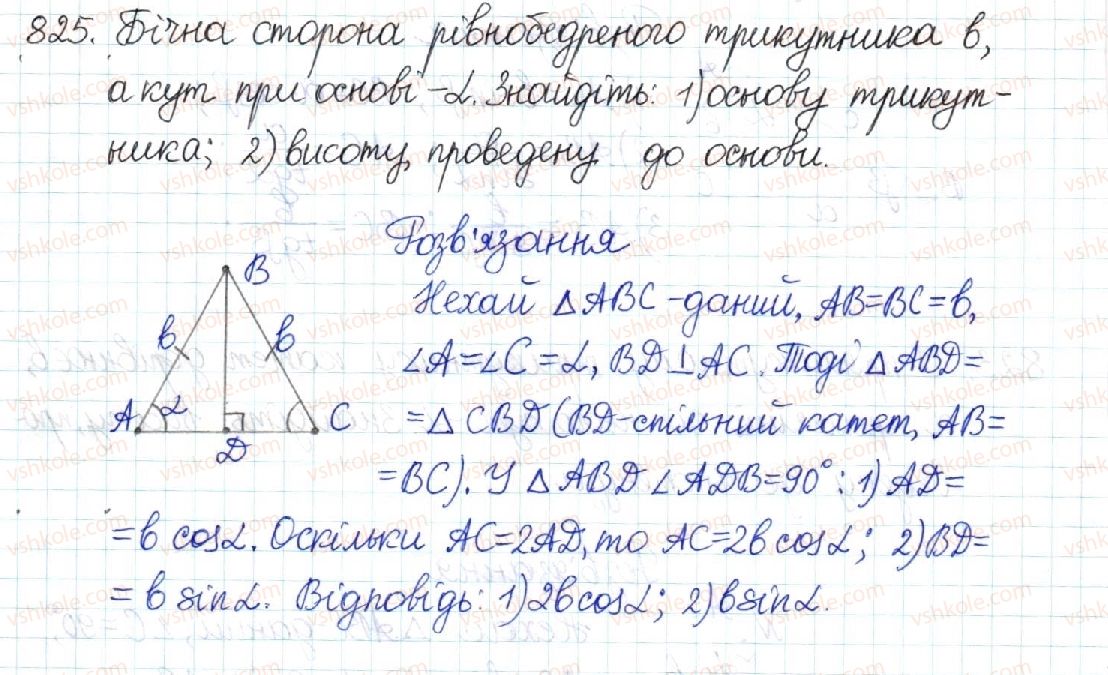 825. Бічна сторона рівнобедреного трикутника b,
а кут при основі – α. Знайдіть: 1) основу трикут-
ника; 2) висоту, проведену до основи.
Розв'язання
B
Нехай △ABC – даний, AB=BC=b,
b b
∠A=∠C=α, BD⊥AC. Тоді △ABD=
A α C
=△CBD (BD – спільний катет, AB=
D
=BC). У △ABD ∠ADB=90°: 1) AD=
=b cosα. Оскільки AC=2AD, то AC=2b cosα; 2) BD=
=b sinα. Відповідь: 1) 2b cosα; 2) b sinα.